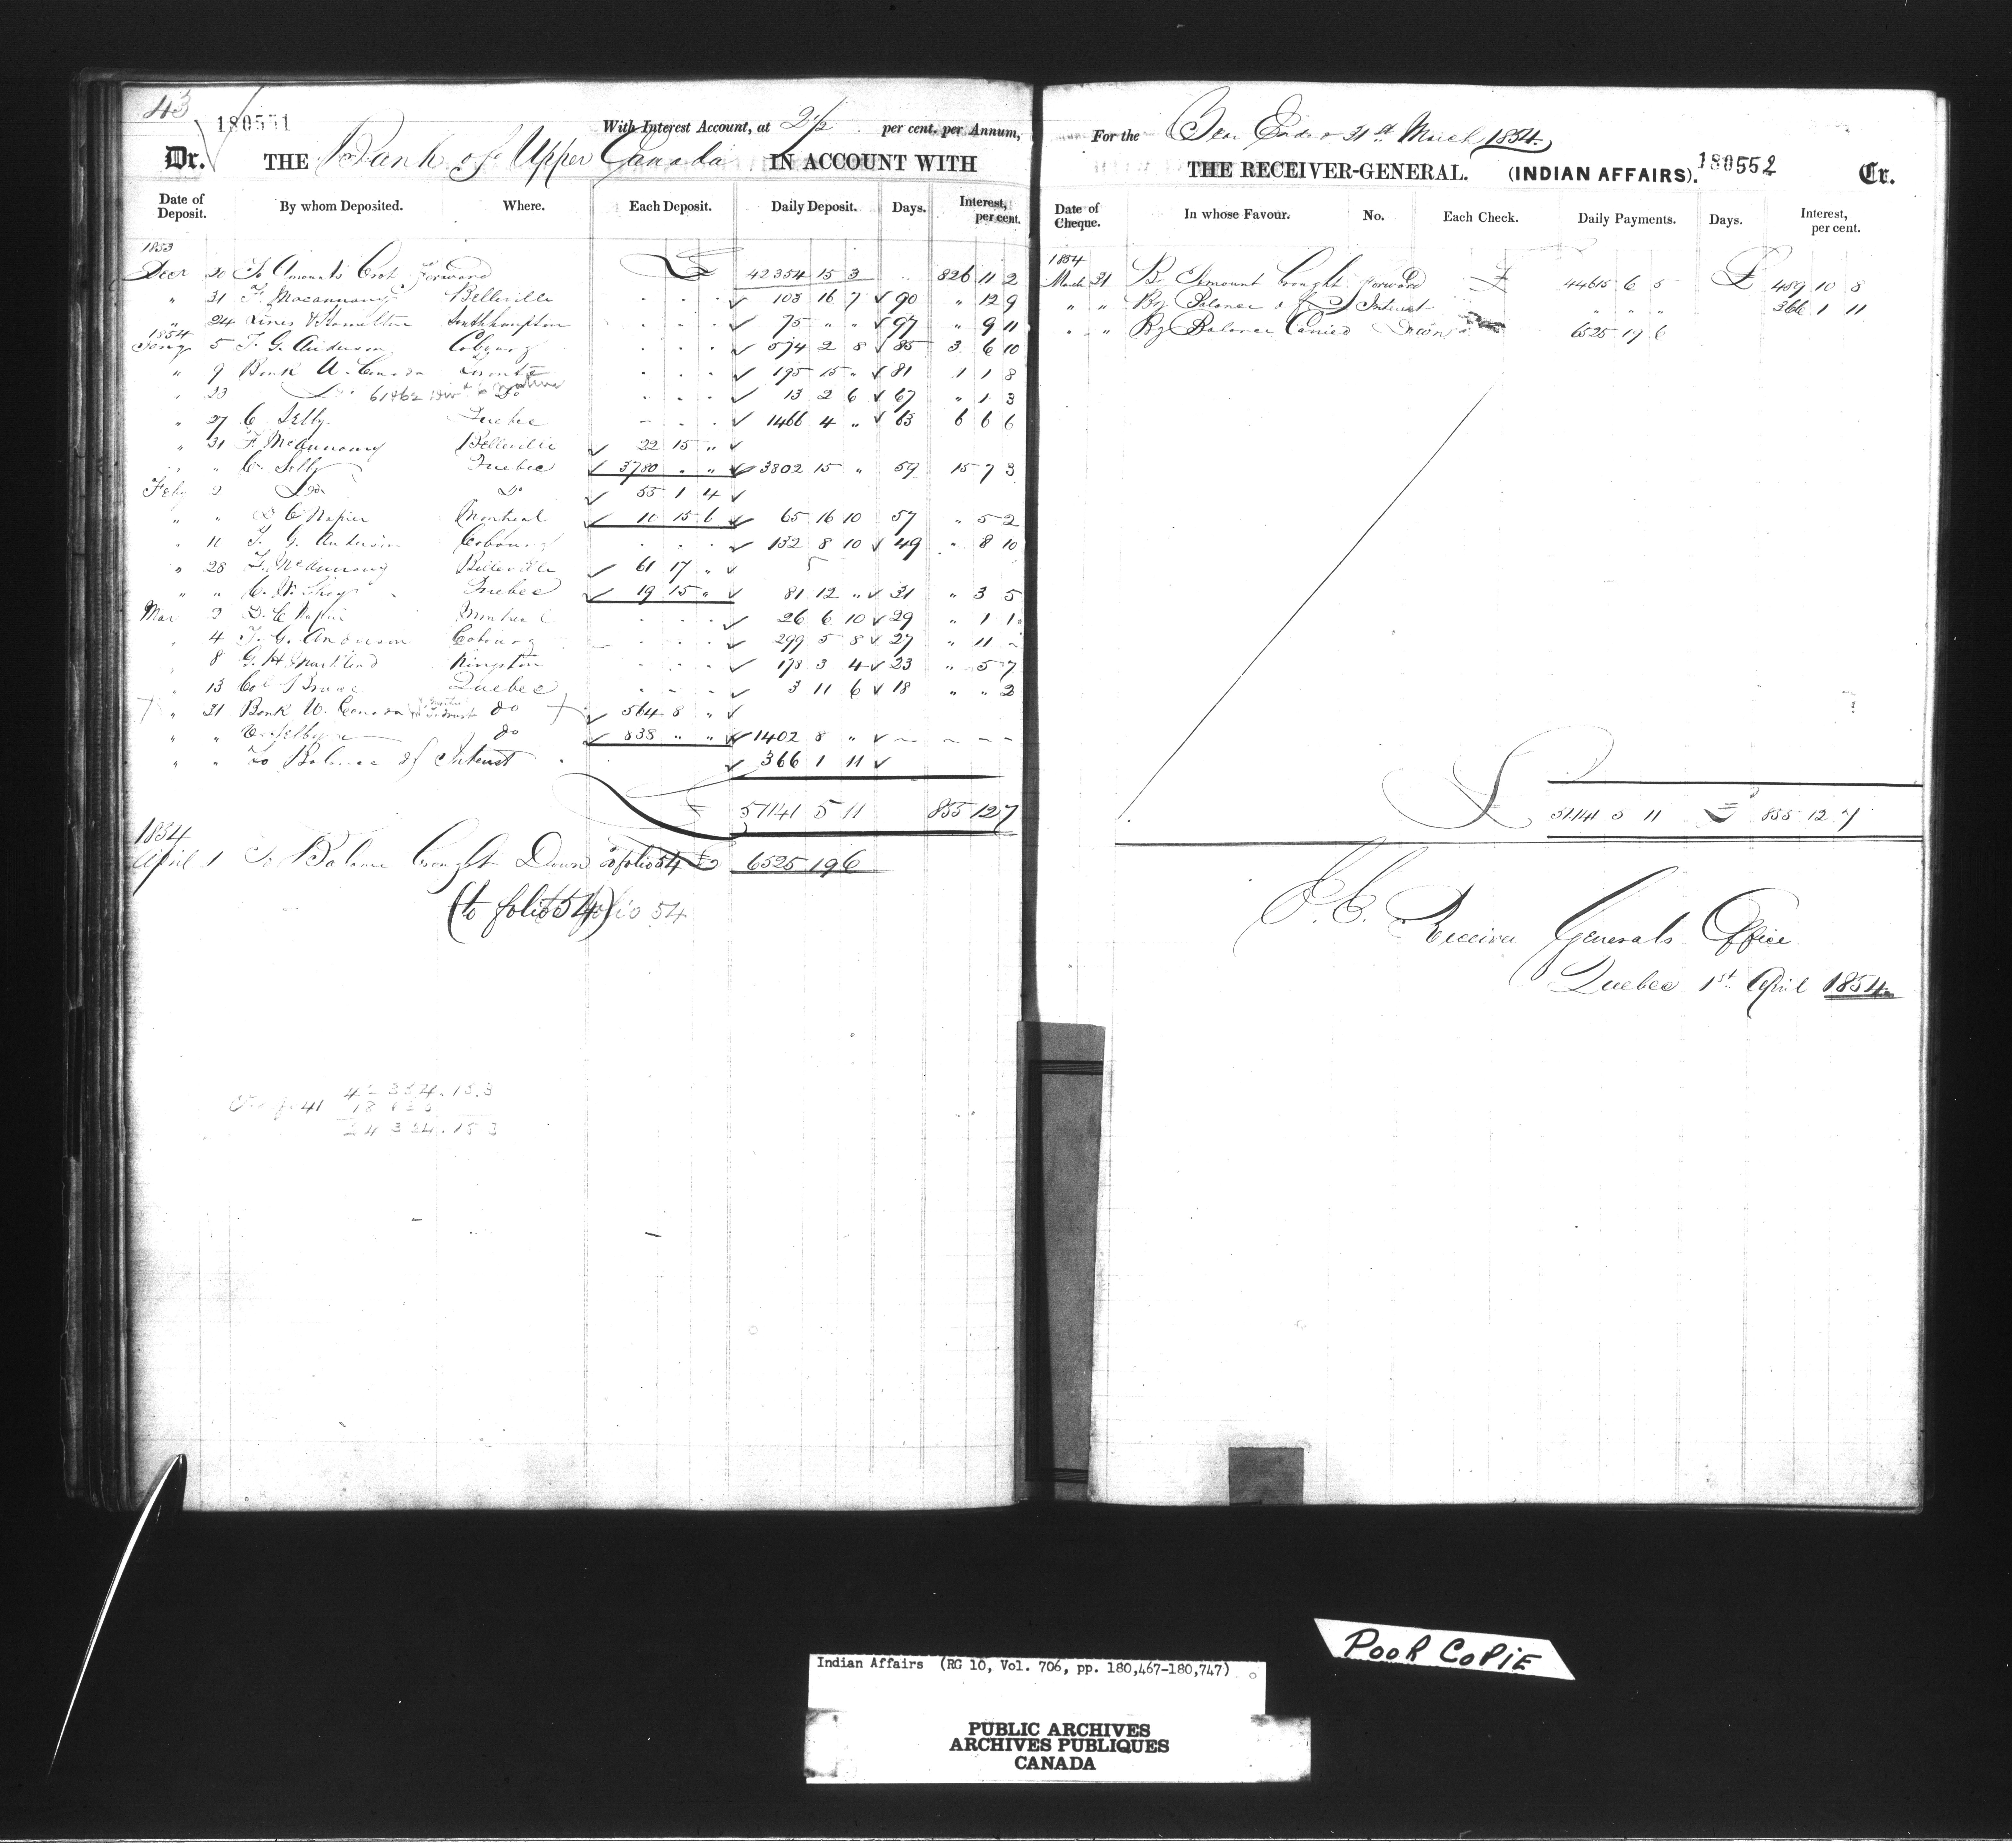 43
180551
With Interest Account, at 2½ per cent. per Annum,
Dr. THE Bank of Upper Canada IN ACCOUNT WITH
Date of Deposit. By whom Deposited. Where. Each Deposit. Daily Deposit. Days. Interest, per cent.
1853
Decr 20 To Amounts Brot forward £ 42354 15 3 826 11 2
" 31 Belleville 108 16 7 90 " 12 9
" 24 Hamilton Southhampton 75 " " 97 " 9 11
1854
Jany 5 T. G. Anderson Cobourg 574 2 8 85 3 6 10
" 9 Bank U. Canada Toronto 195 15 " 81 1 1 8
" 23 Do Do 13 2 6 67 " 1 3
" 27 C. Selby Quebec 1466 4 " 63 6 6 6
" 31 T. McAnnany Belleville 22 15 "
" " C. Selby Quebec 3780 " " 3802 15 " 59 15 7 3
Feby 2 Do Do 55 1 4
" " D C Napier Montreal 10 15 6 65 16 10 57 " 5 2
" 10 T. G. Anderson Cobourg 132 8 10 49 " 8 10
" 28 T. McAnnany Belleville 61 17 "
" " Quebec 19 15 " 81 12 " 31 " 3 5
Mar 2 D. C Napier Montreal 26 6 10 29 " 1 1
" 4 T. G. Anderson Cobourg 299 5 8 27 " 11 "
" 8 G. H. Markland Kingston 178 3 4 23 " 5 7
" 13 Col Bruce Quebec 3 11 6 18 " " 2
" 31 Bank U. Canada do 564 8 "
" " C. Selby do 838 " " 1402 8 "
" " To Balance of Interest 366 1 11
£ 51141 5 11 855 12 7
1854
April 1 To Balance brought Down to folio 54 £ 6525 19 6
(to folio 54) folio 54
41 42354.15.3
24354.15 3
For the Year Ended 31st March 1854.
THE RECEIVER-GENERAL. (INDIAN AFFAIRS). 180552 Cr.
Date of Cheque. In whose Favour. No. Each Check. Daily Payments. Days. Interest, per cent.
1854
March 31 By Amount brought forward £ 44615 6 5 £ 489 10 8
" " By Balance of Interest " " " 366 1 11
" " By Balance Carried Down 6525 19 6
£ 51141 5 11 £ 855 12 7
E. E.
Receiver Generals Office
Quebec 1st April 1854
POOR COPIE
Indian Affairs (RG 10, Vol. 706, pp. 180,467-180,747)
PUBLIC ARCHIVES
ARCHIVES PUBLIQUES
CANADA